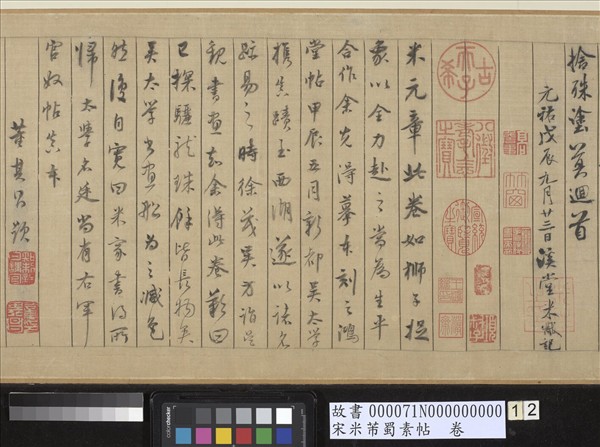 捨殊塗莫迴首
元祐戊辰九月廿三日溪堂米黻記
古希天子
米元章此卷如獅子捉
象以全力赴之當為生平
合作余先得摹本刻之鴻
堂帖甲辰五月新都吳太學
攜真蹟至西湖遂以諸名
跡易之時徐茂吳方詣吳
觀書畫知余得此卷歎曰
已探驪龍珠餘皆長物矣
吳太學書畫船為之減色
然後自寬曰米家書得所
歸太學名廷尚有右軍
官奴帖真本
董其昌題
故書 000071N000000000 12
宋米芾蜀素帖 卷